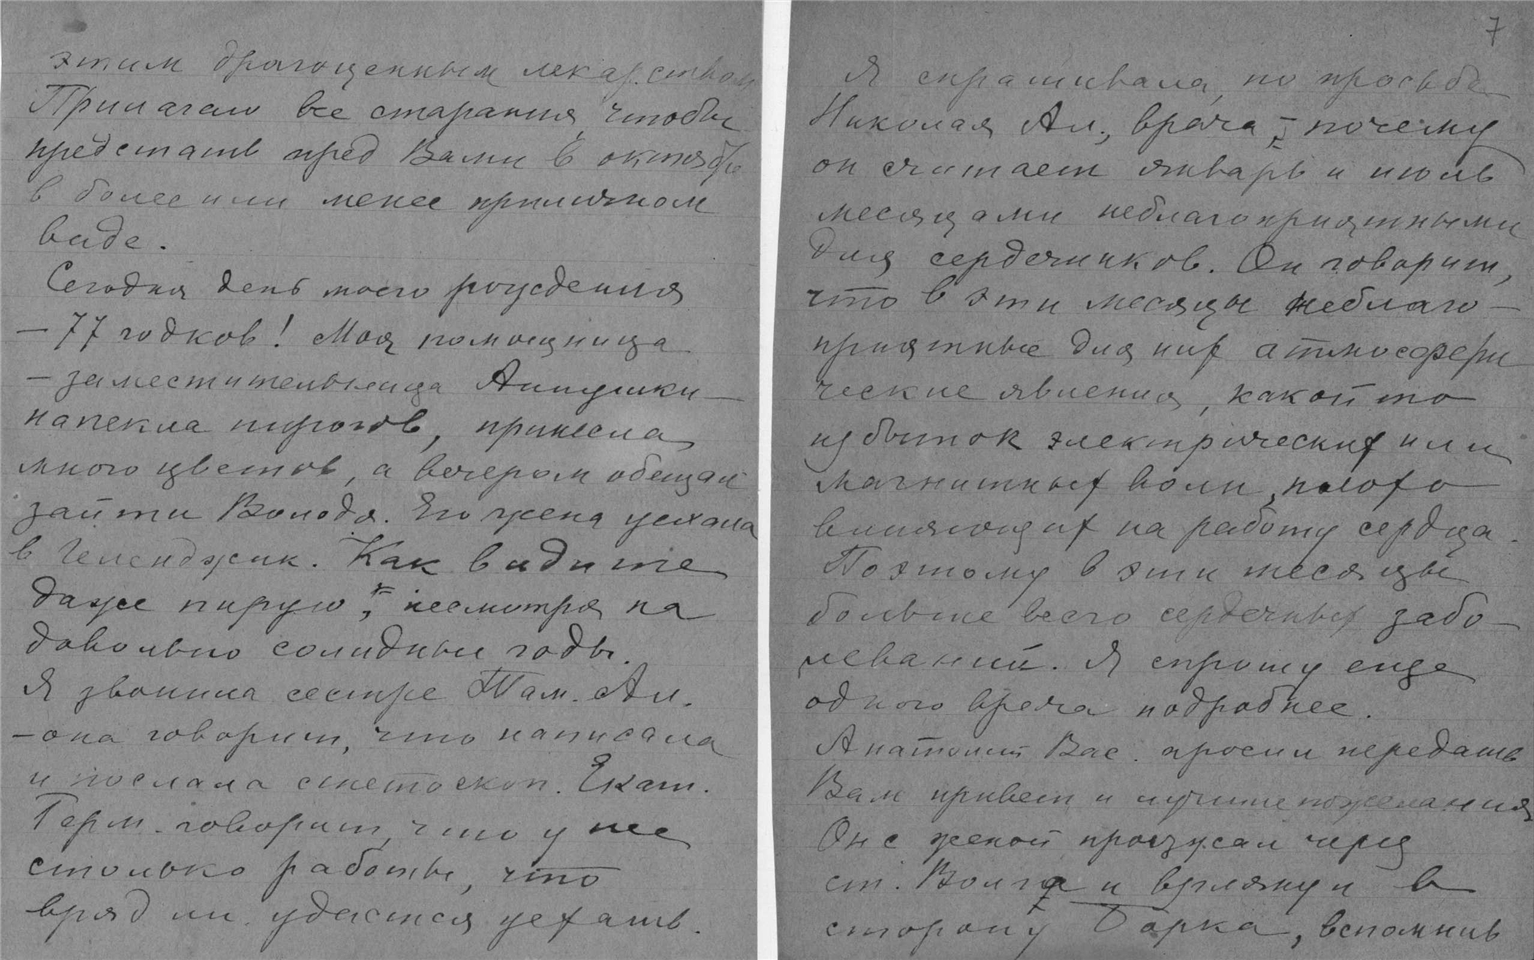 этим драгоценным лекарством
Прилагаю все старания, чтобы
предстать пред Вами в октябре
в более или менее приличном
виде.
Сегодня день моего рождения
— 77 годков! Моя помощница
— заместительница Аннушки —
напекла пирогов, принесла
много цветов, а вечером обещал
зайти Володя. Его жена уехала
в Геленджик. Как видите
даже пирую, несмотря на
довольно солидные годы.
Я звонила сестре Там. Ал.
— она говорит, что написала
и послала стетоскоп. Екат.
Герм. говорит, что у нее
столько работы, что
вряд ли удастся уехать.
7
Я спрашивала, по просьбе
Николая Ал., врача — почему
он считает январь и июль
месяцами неблагоприятными
для сердечников. Он говорит,
что в эти месяцы неблаго-
приятные для них атмосфери
ческие явления, какой то
избыток электрических или
магнитных волн, плохо
влияющих на работу сердца.
Поэтому в эти месяцы
больше всего сердечных забо-
леваний. Я спрошу еще
одного врача подробнее.
Анатолий Вас. просил передать
Вам привет и лучшие пожелания
Он с женой проезжал через
ст. Волга и взглянул в
сторону Борка, вспомнив